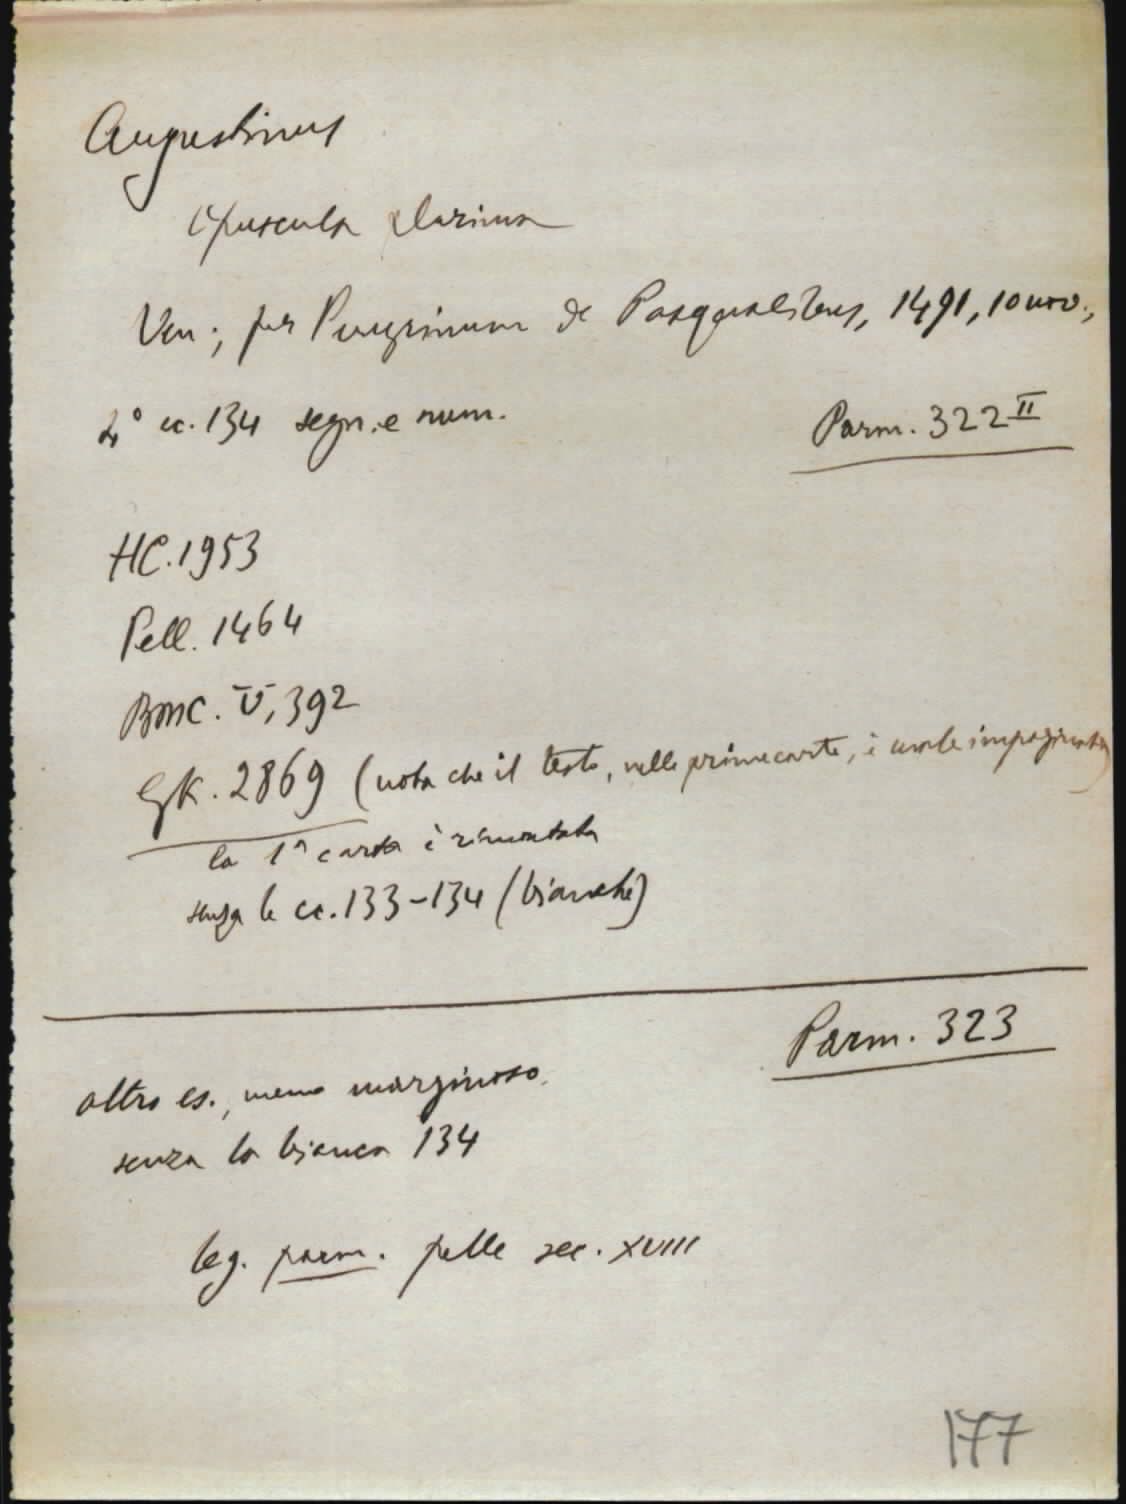 Augustinus
Opuscula plurima
Ven; per Peregrinum de Pasqualibus, 1491, 10 nov.,
4° cc. 134 segn. e num.
Parm. 322 II
HC. 1953
Pell. 1464
BMC. V, 392
GK. 2869 (nota che il testo, nelle prime carte, è
la 1ª carta è rimontata
senza le cc. 133-134 (bianche)
Parm. 323
altro es., meno marginoso.
senza la bianca 134
leg. parm. pelle sec. XVIII
177